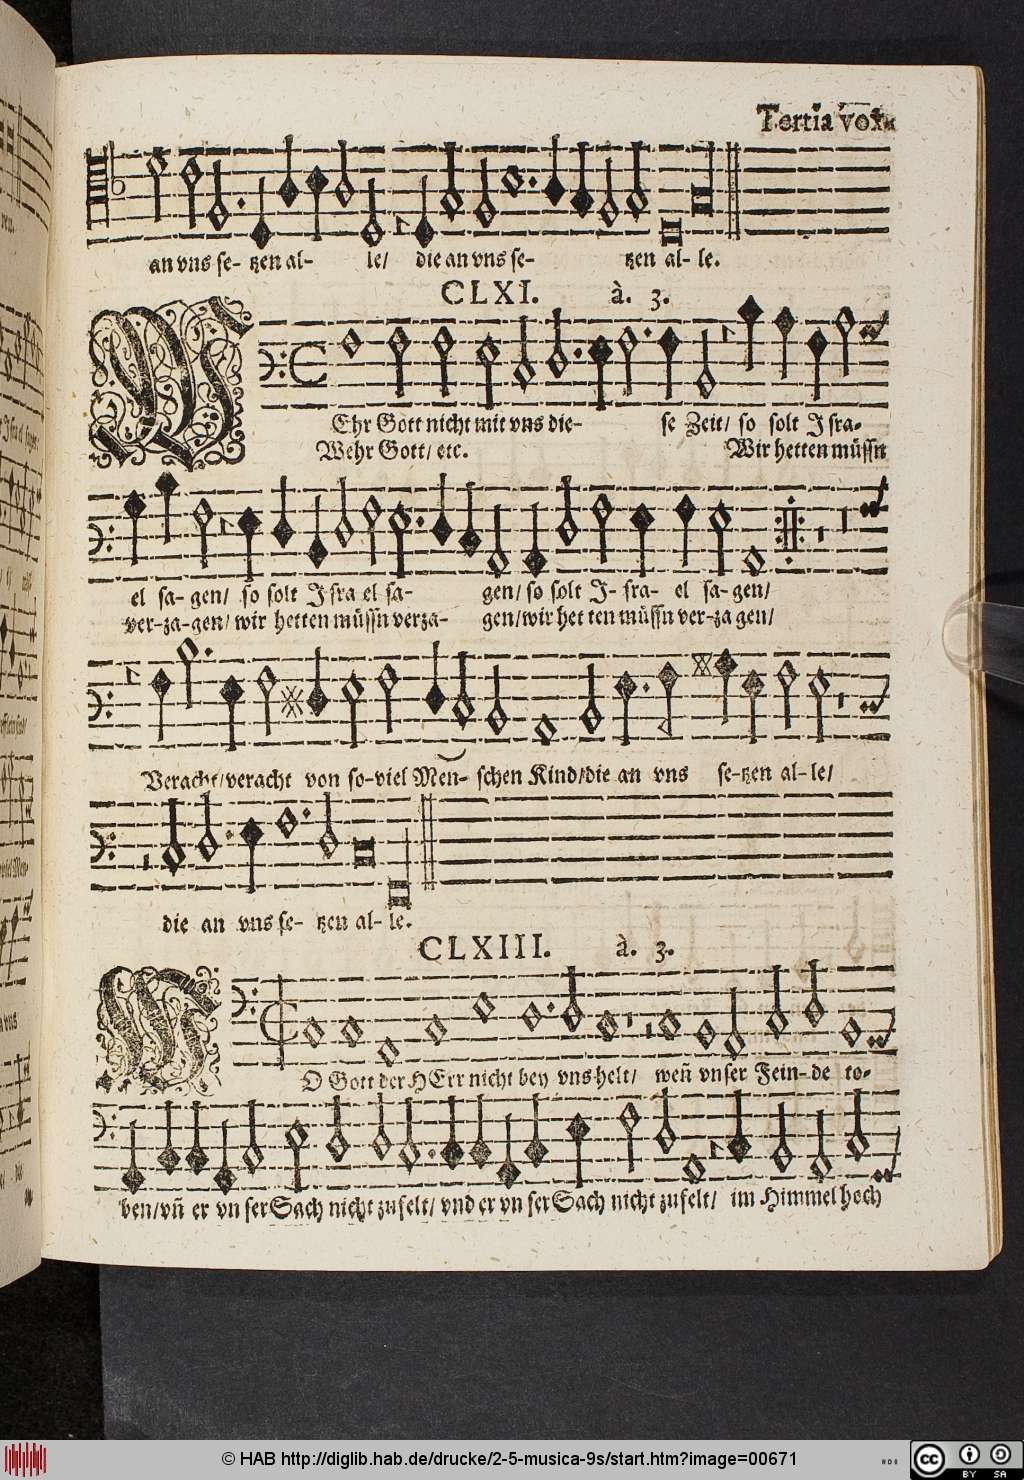 Tertia vox.
an vns se- tzen al- le/ die an vns se- tzen al- le.
CLXI. à. 3.
WEhr Gott nicht mit vns die- se Zeit/ so solt Isra-
Wehr Gott/ etc. Wir hetten müssn
el sa- gen/ so solt Isra el sa- gen/ so solt I- sra- el sa- gen/
ver-za-gen/ wir hetten müssn verza- gen/ wir het ten müssn ver-za gen/
Veracht/veracht von so-viel Men- schen Kind/die an vns se-tzen al-le/
die an vns se- tzen al- le.
CLXIII. à. 3.
WO Gott der HErr nicht bey vns helt/ weñ vnser Fein-de to-
ben/vñ er vn ser Sach nicht zufelt/ vnd er vn ser Sach nicht zufelt/ im Himmel hoch
© HAB http://diglib.hab.de/drucke/2-5-musica-9s/start.htm?image=00671
cc BY SA